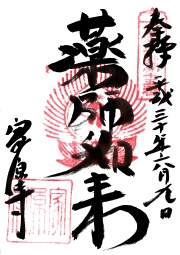 奉拝 平成三十年六月九日
薬師如来
家原寺